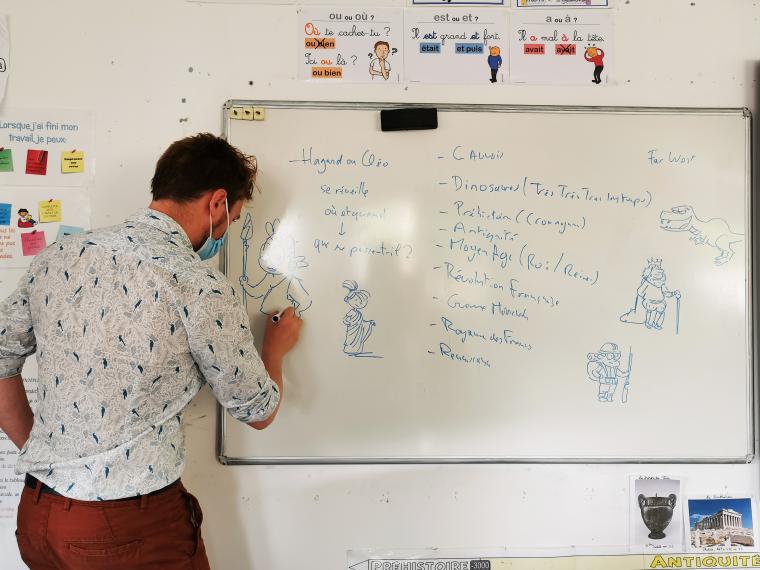 ou ou où ?
Où te caches-tu ?
ou bien
Ici ou là ?
ou bien
est ou et ?
Il est grand et fort.
était
et puis
a ou à ?
Il a mal à la tête.
avait
avait
Lorsque j'ai fini mon
travail, je peux:
- Hagard ou Cléo
se réveille
où et quand
↓
que se passe-t-il ?
- Dinosaures (Très Très Très longtemps)
- Préhistoire (Cromagnon)
- Antiquité
- Moyen Age (Roi / Reines)
- Révolution Française
- Guerre Mondiale
- Royaume des Francs
- Renaissance
Far West
PREHISTOIRE -3000
ANTIQUITÉ